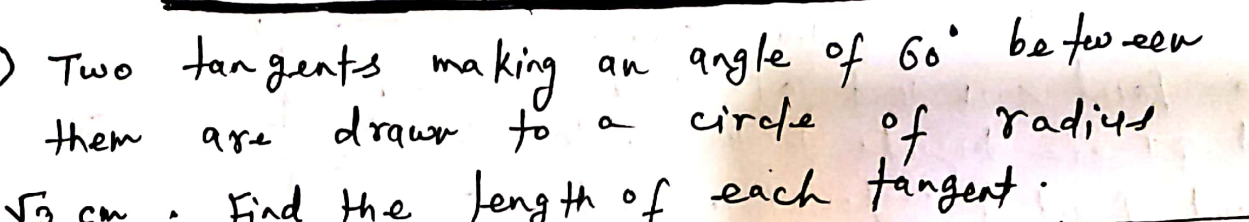 ) Two tangents making an angle of 60° between
them are drawn to a circle of radius
cm . Find the length of each tangent .